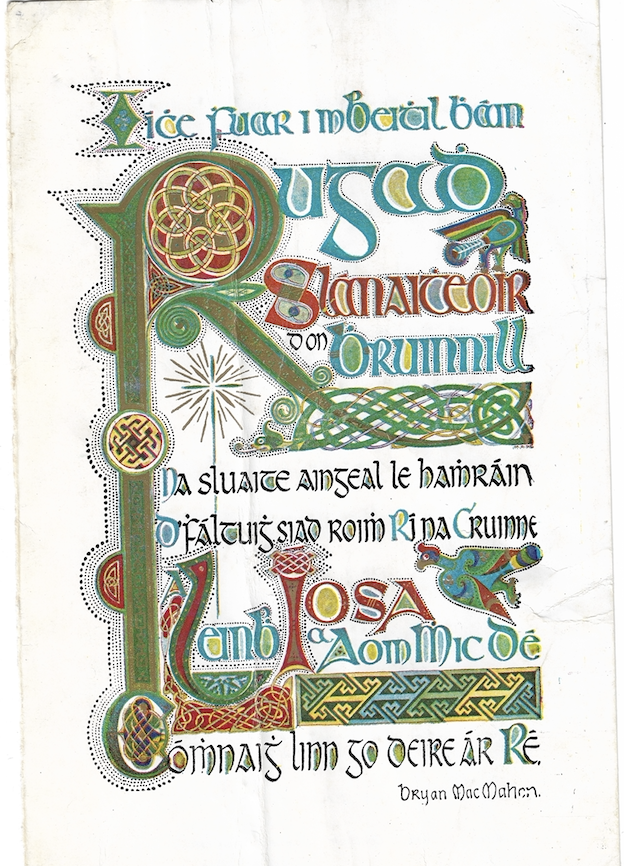 Oiċe ḟuar i mBeiṫil ḃáin
Rugaḋ
Slánaiṫeoir
don ḃruinnill
Na sluaite aingeal le haṁráin
D'ḟáltuiġ siad roiṁ Rí na Cruinne
Leinḃ Íosa
a Aon Ṁic Dé
Cóṁnaiġ linn go deire ár Ré.
Bryan MacMahon.